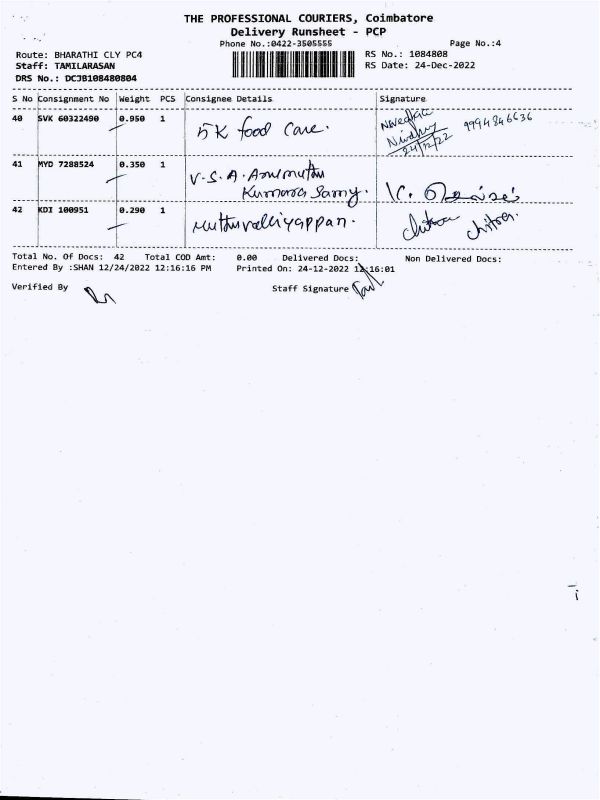 THE PROFESSIONAL COURIERS, Coimbatore
Delivery Runsheet - PCP
Phone No.:0422-3505555
Page No.:4
Route: BHARATHI CLY PC4
RS No.: 1084808
Staff: TAMILARASAN
RS Date: 24-Dec-2022
DRS No.: DCJB108480804
S No Consignment No Weight PCS Consignee Details Signature
40 SVK 60322490 0.950 1 5K food Care. 9994846636
24/12/22
41 MYD 7288524 0.350 1 V.S.A.
Kumara Samy. K.
42 KDI 100951 0.290 1 muthuvalliyappan. chitra chitra.
Total No. Of Docs: 42 Total COD Amt: 0.00 Delivered Docs: Non Delivered Docs:
Entered By :SHAN 12/24/2022 12:16:16 PM Printed On: 24-12-2022 12:16:01
Verified By Staff Signature